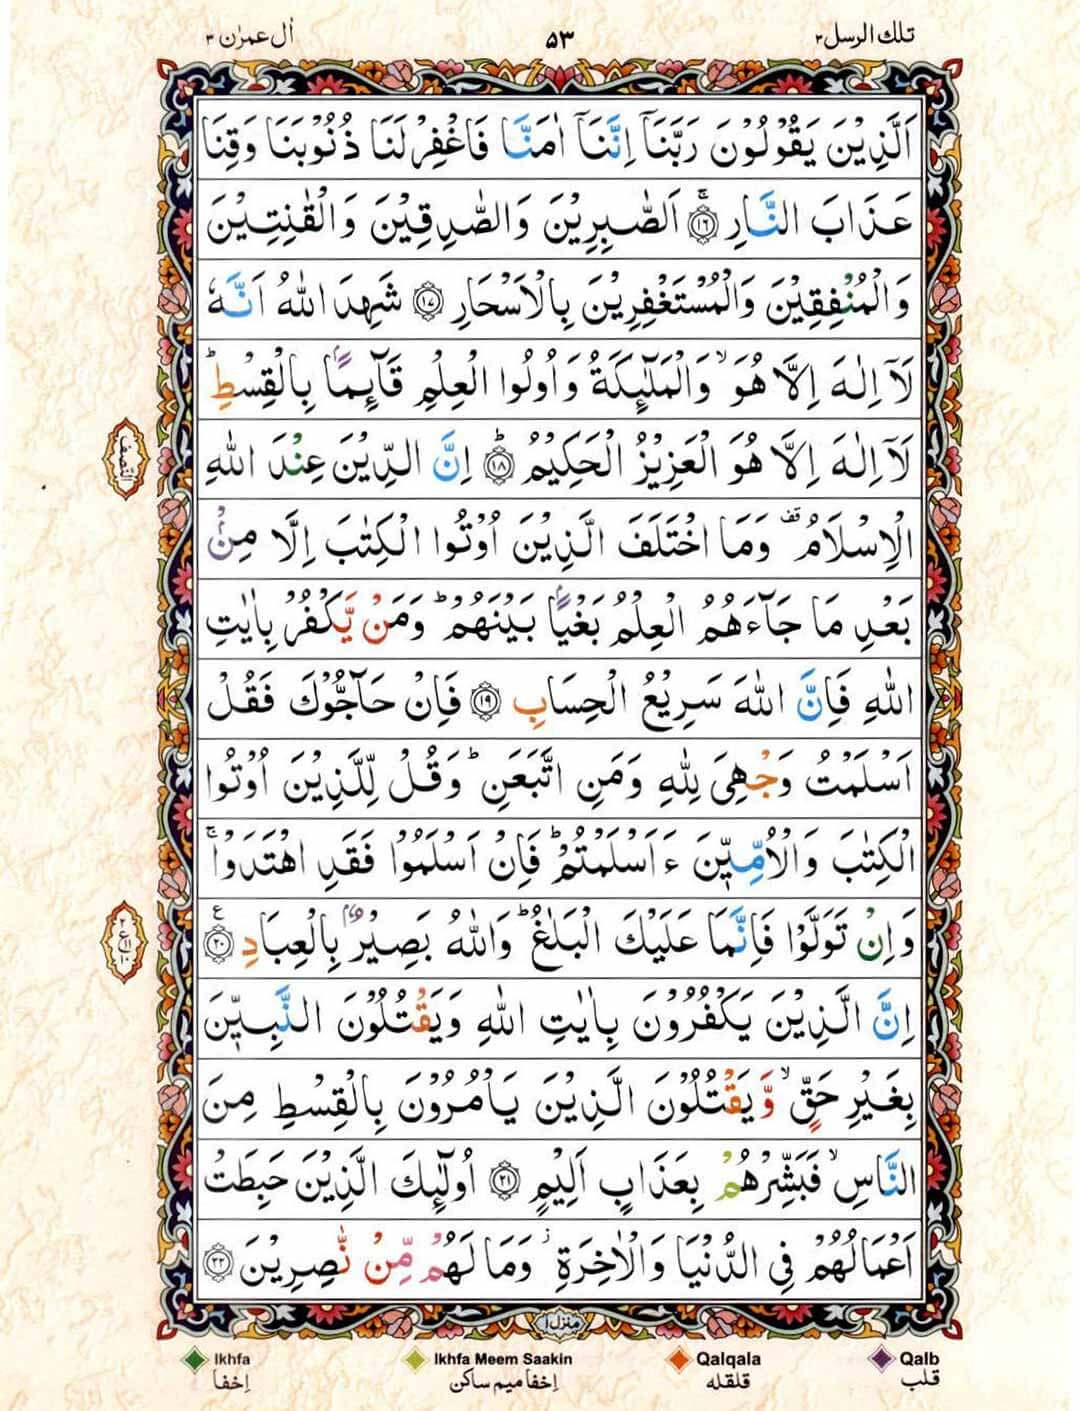 تلك الرسل ٣ ٥٣ اٰل عمرٰن ٣
اَلَّذِيْنَ يَقُوْلُوْنَ رَبَّنَاۤ اِنَّنَاۤ اٰمَنَّا فَاغْفِرْ لَنَا ذُنُوْبَنَا وَقِنَا
عَذَابَ النَّارِ ۚ‏ ﴿۱۶﴾ اَلصّٰبِرِيْنَ وَالصّٰدِقِيْنَ وَالْقٰنِتِيْنَ
وَالْمُنْفِقِيْنَ وَالْمُسْتَغْفِرِيْنَ بِالْاَسْحَارِ ﴿۱۷﴾ شَهِدَ اللّٰهُ اَنَّهٗ
لَاۤ اِلٰهَ اِلَّا هُوَ ۙ وَالْمَلٰٓئِكَةُ وَاُولُوا الْعِلْمِ قَآئِمًاۢ بِالْقِسْطِ ؕ
لَاۤ اِلٰهَ اِلَّا هُوَ الْعَزِيْزُ الْحَكِيْمُ ؕ ﴿۱۸﴾ اِنَّ الدِّيْنَ عِنْدَ اللّٰهِ
النّصف
الْاِسْلَامُ قف وَمَا اخْتَلَفَ الَّذِيْنَ اُوْتُوا الْكِتٰبَ اِلَّا مِنْۢ
بَعْدِ مَا جَآءَهُمُ الْعِلْمُ بَغْيًاۢ بَيْنَهُمْ ؕ وَمَنْ يَّكْفُرْ بِاٰيٰتِ
اللّٰهِ فَاِنَّ اللّٰهَ سَرِيْعُ الْحِسَابِ ﴿۱۹﴾ فَاِنْ حَآجُّوْكَ فَقُلْ
اَسْلَمْتُ وَجْهِىَ لِلّٰهِ وَمَنِ اتَّبَعَنِ ؕ وَقُلْ لِّلَّذِيْنَ اُوْتُوا
الْكِتٰبَ وَالْاُمِّيّٖنَ ءَاَسْلَمْتُمْ ؕ فَاِنْ اَسْلَمُوْا فَقَدِ اهْتَدَوْا ۚ
وَاِنْ تَوَلَّوْا فَاِنَّمَا عَلَيْكَ الْبَلٰغُ ؕ وَاللّٰهُ بَصِيْرٌۢ بِالْعِبَادِ ﴿۲۰﴾ ع
اِنَّ الَّذِيْنَ يَكْفُرُوْنَ بِاٰيٰتِ اللّٰهِ وَيَقْتُلُوْنَ النَّبِيّٖنَ
بِغَيْرِ حَقٍّ ۙ وَّيَقْتُلُوْنَ الَّذِيْنَ يَاْمُرُوْنَ بِالْقِسْطِ مِنَ
النَّاسِ ۙ فَبَشِّرْهُمْ بِعَذَابٍ اَلِيْمٍ ﴿۲۱﴾ اُولٰٓئِكَ الَّذِيْنَ حَبِطَتْ
اَعْمَالُهُمْ فِى الدُّنْيَا وَالْاٰخِرَةِ ز وَمَا لَهُمْ مِّنْ نّٰصِرِيْنَ ﴿۲۲﴾
منزل ١
Ikhfa Ikhfa Meem Saakin Qalqala Qalb
اِخفا اِخفا میم ساکن قلقله قلب